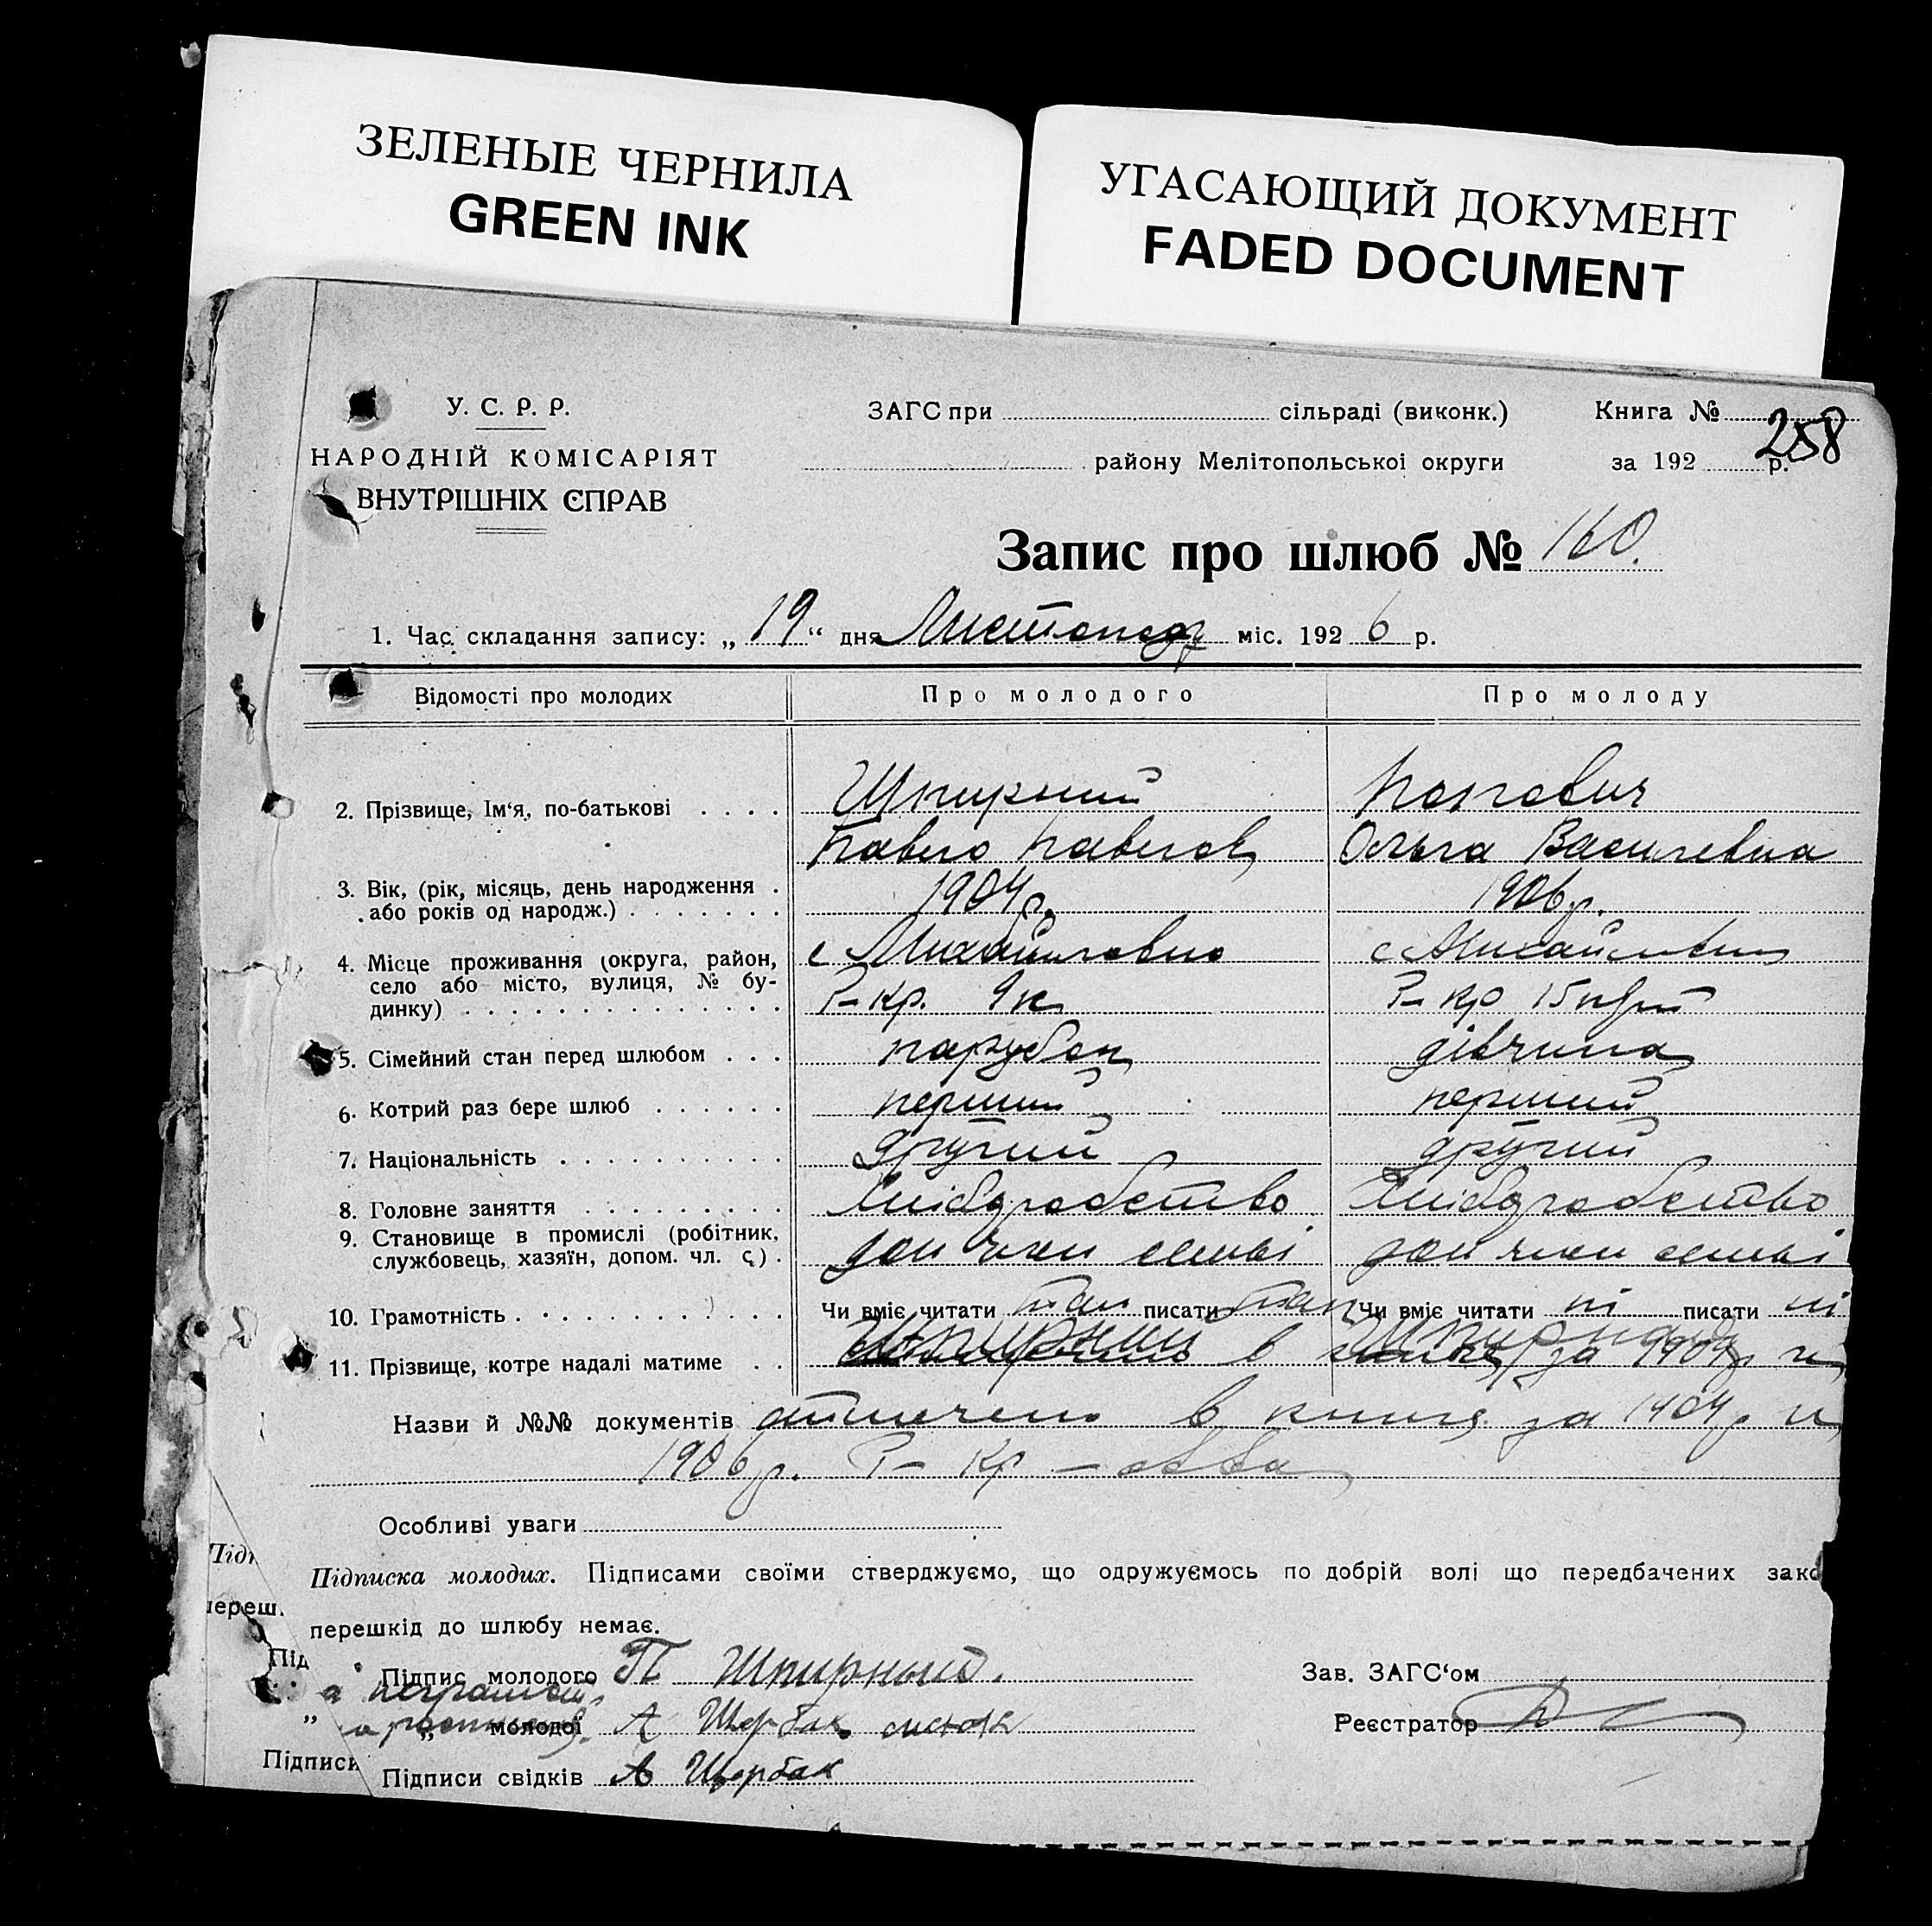 ЗЕЛЕНЫЕ ЧЕРНИЛА
GREEN INK
УГАСАЮЩИЙ ДОКУМЕНТ
FADED DOCUMENT
У. С. Р. Р.
НАРОДНІЙ КОМІСАРІЯТ
ВНУТРІШНІХ ЄПРАВ
ЗАГС при сільраді (виконк.)
району Мелітопольської округи
Книга №
за 192 р.
258
Запис про шлюб № 160.
1. Час складання запису: „ 19 “ дня Листопада міс. 192 6 р.
Відомості про молодих Про молодого Про молоду
2. Прізвище, Ім‘я, по-батькові Шпирний Попович
Павло Павлов Ольга Василевна
3. Вік, (рік, місяць, день народження
або років од народж.) 1904 р. 1906 р.
4. Місце проживання (округа, район, с Михайловка с Михайловка
село або місто, вулиця, № бу-
динку) Р-Кр. 9 к Р-Кр 15
5. Сімейний стан перед шлюбом парубок дівчина
6. Котрий раз бере шлюб перший перший
7. Національність другий другий
8. Головне заняття Хліборобство Хліборобство
9. Становище в промислі (робітник,
службовець, хазяїн, допом. чл. с) доп член семьі доп член семьі
10. Грамотність Чи вміє читати так писати так Чи вміє читати ні писати ні
11. Прізвище, котре надалі матиме Шпирний Шпирная
Назви й №№ документів отмечено в книге за 1904 р и
1906 р. Р- Кр -
Особливі уваги
Підписка молодих. Підписами своїми стверджуємо, що одружуємось по добрій волі що передбачених зако
перешкід до шлюбу немає.
Підпис молодого П Шпирный.
а неграмот.
„ молодої А Щербак
Підписи свідків А Щербак
Зав. ЗАГС‘ом
Реєстратор
Підп
переш.
Під
„
Підписи